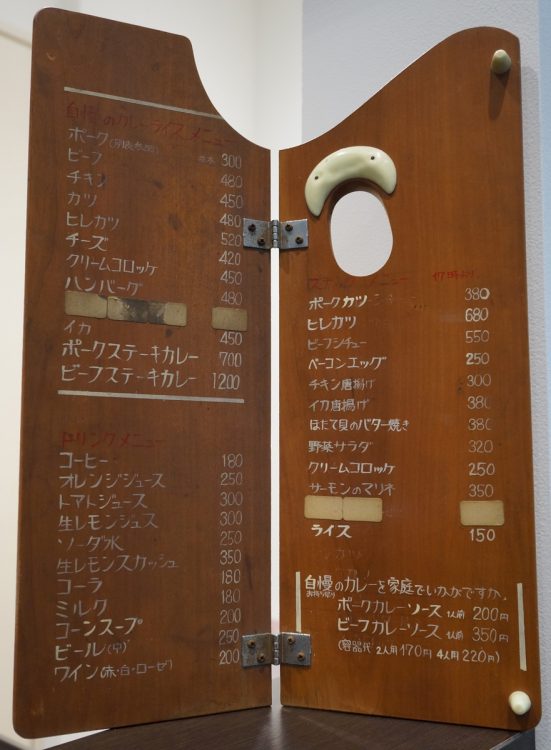 自慢のカレーライスメニュー
ポーク(別表参照) 基本 300
ビーフ 480
チキン 450
カツ 480
ヒレカツ 520
チーズ 420
クリームコロッケ 450
ハンバーグ 480
イカ 450
ポークステーキカレー 700
ビーフステーキカレー 1200
ドリンクメニュー
コーヒー 180
オレンジジュース 250
トマトジュース 300
生レモンジュース 300
ソーダ水 250
生レモンスカッシュ 350
コーラ 180
ミルク 180
コーンスープ 200
ビール(中) 250
ワイン(赤・白・ロ-ゼ) 200
メニュー
ポークカツ 380
ヒレカツ 680
ビーフシチュー 550
ベーコンエッグ 250
チキン唐揚げ 300
イカ唐揚げ 380
ほたて貝のバター焼き 380
野菜サラダ 320
クリームコロッケ 250
サーモンのマリネ 350
ライス 150
自慢のカレーを家庭でいかがですか。
お持ち帰り
ポークカレーソース 1人前 200円
ビーフカレーソース 1人前 350円
(容器代 2人用170円 4人用220円)